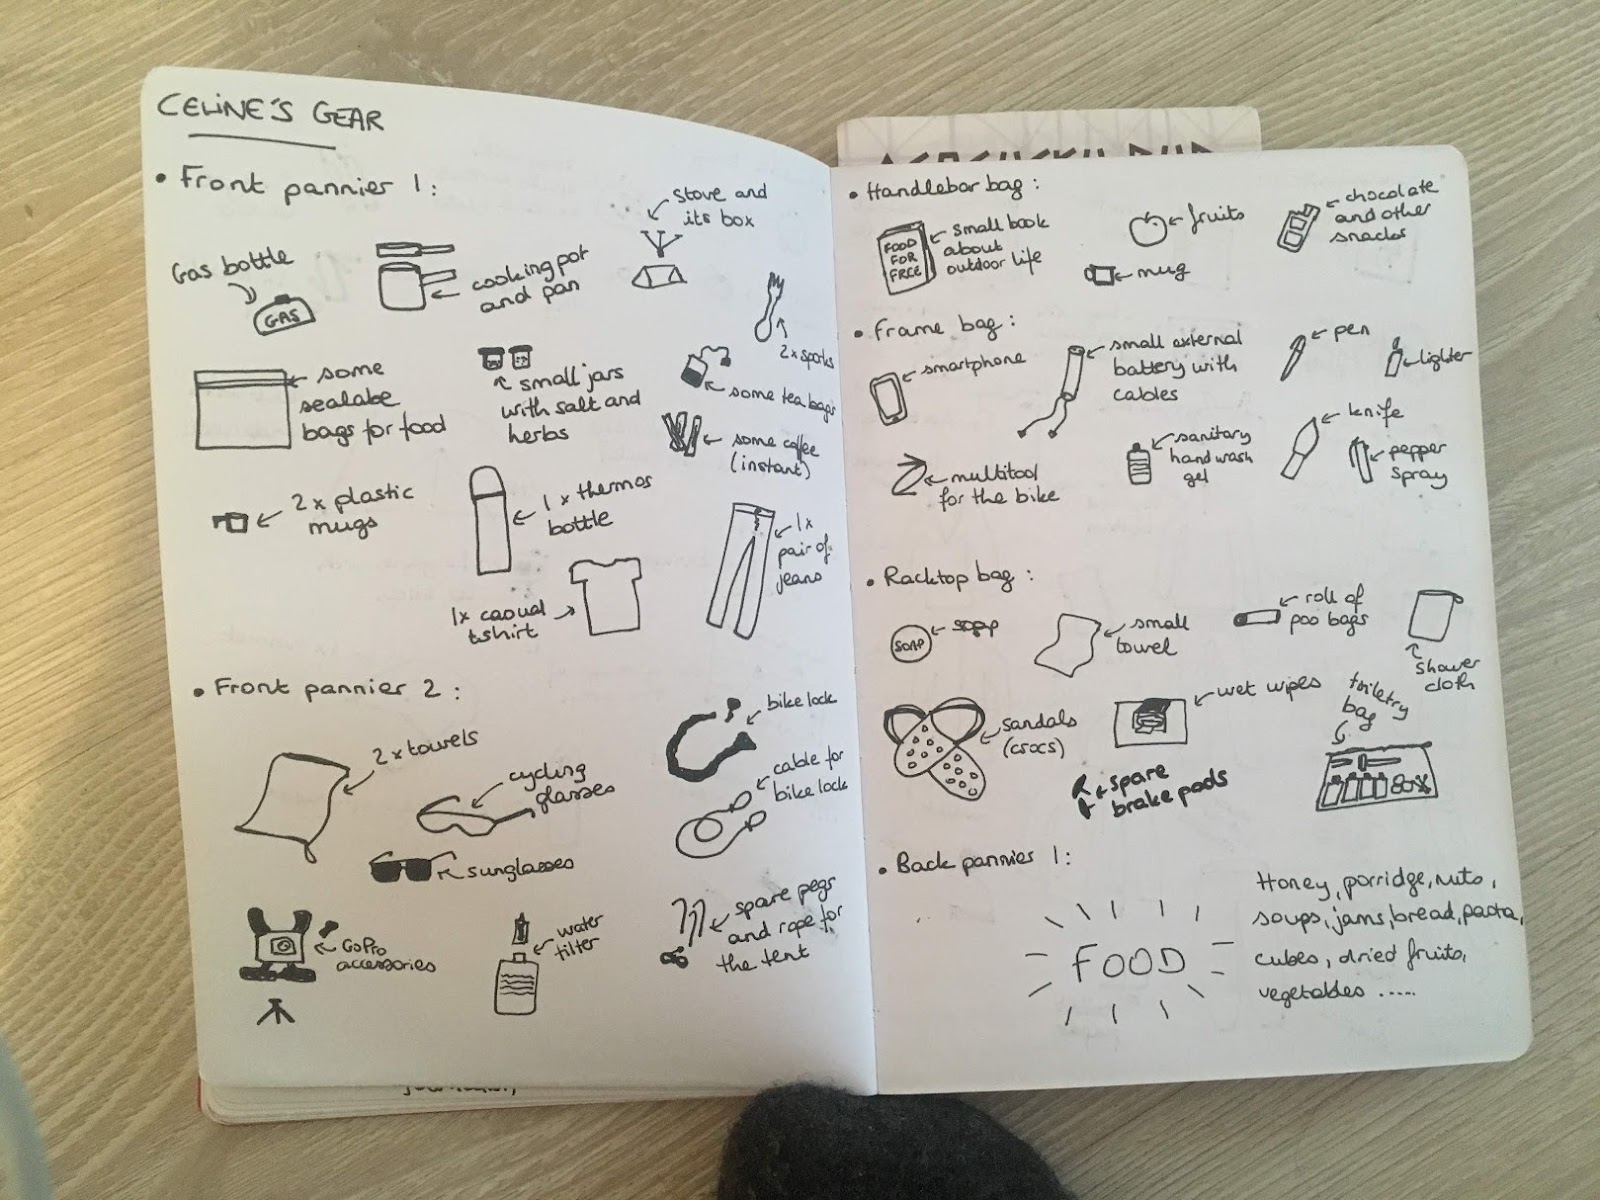 CELINE'S GEAR
• Front pannier 1:
Gas bottle
GAS
cooking pot
and pan
stove and
its box
2 x sporks
some
sealabe
bags for food
small jars
with salt and
herbs
some tea bags
some coffee
(instant)
2 x plastic
mugs
1 x thermos
bottle
1x
pair of
jeans
1x casual
tshirt
• Front pannier 2:
2 x towels
cycling
glasses
sunglasses
bike lock
cable for
bike lock
GoPro
accessories
water
filter
spare pegs
and rope for
the tent
• Handlebar bag:
FOOD
FOR
FREE
small book
about
outdoor life
fruits
mug
chocolate
and other
snacks
• Frame bag:
smartphone
small external
battery with
cables
pen
lighter
multitool
for the bike
sanitary
hand wash
gel
knife
pepper
spray
• Racktop bag:
SOAP
soap
small
towel
roll of
poo bags
shower
cloth
sandals
(crocs)
wet wipes
spare
brake pads
toiletry
bag
• Back pannier 1:
FOOD
Honey, porridge, nuts,
soups, jams, bread, pasta,
cubes, dried fruits,
vegetables .....